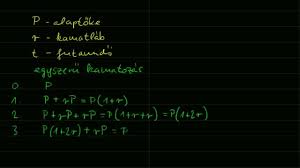 P - alaptőke
r - kamatláb
t - futamidő
egyszerű kamatozás
0 P
1. P + rP = P(1+r)
2 P + rP + rP = P(1+r+r) = P(1+2r)
3 P(1+2r) + rP = P